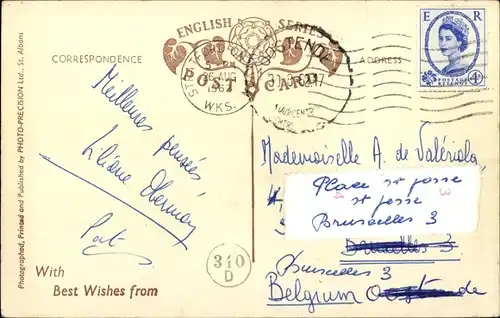 ENGLISH SERIES
POST CARD
CORRESPONDENCE
ADDRESS
E R
POSTAGE REVENUE
OOSTENDE
AUG
WKS.
Meilleures pensées,
Liliane
Mademoiselle A. de Valériola,
Place st josse
st josse
Bruxelles 3
Bruxelles 3
Bruxelles 3
Belgium Oostende
340
D
With
Best Wishes from
Photographed, Printed and Published by PHOTO-PRECISION Ltd., St. Albans